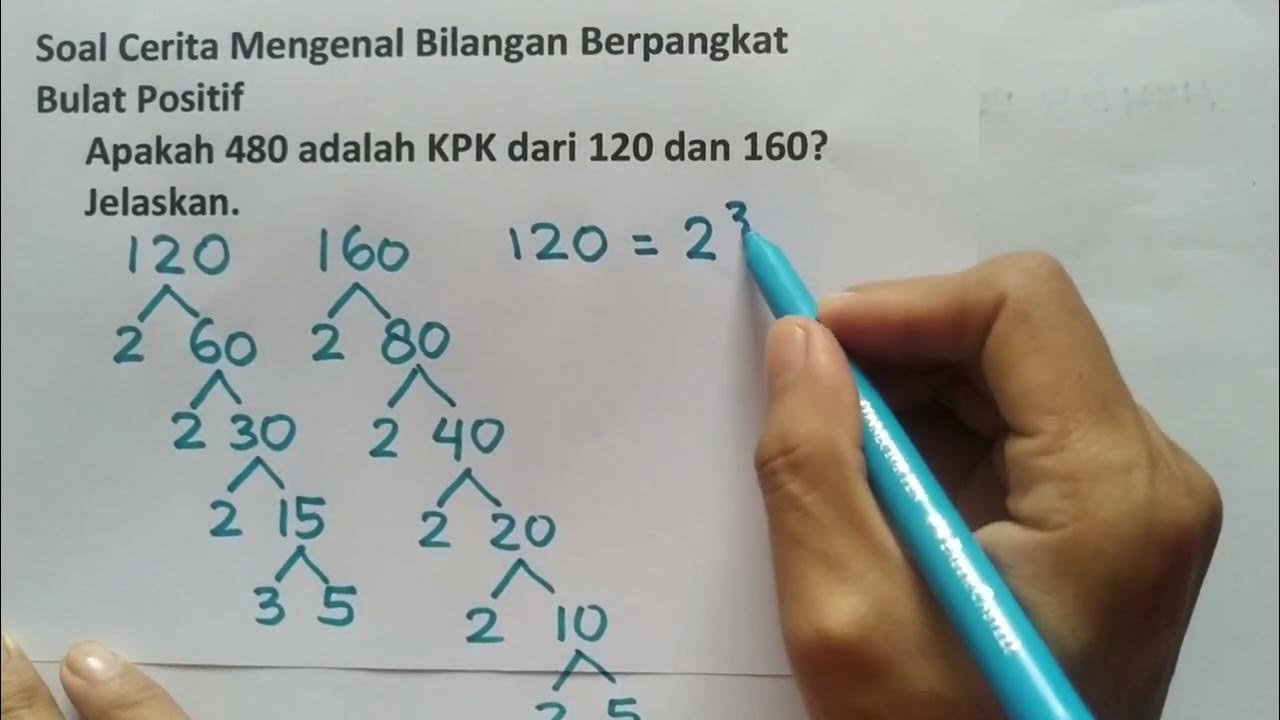 Soal Cerita Mengenal Bilangan Berpangkat
Bulat Positif
Apakah 480 adalah KPK dari 120 dan 160?
Jelaskan.
120 160 120 = 2³
2 60 2 80
2 30 2 40
2 15 2 20
3 5 2 10
2 5